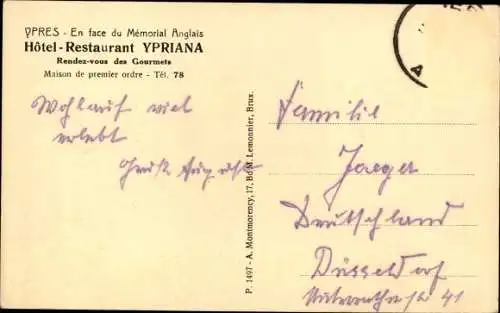 YPRES - En face du Mémorial Anglais
Hôtel-Restaurant YPRIANA
Rendez-vous des Gourmets
Maison de premier ordre - Tél. 78
Wohlauf viel
erlebt
Gruß August
P. 1497 - A. Montmorency, 17, Bd M. Lemonnier, Brux.
Familie
Jaeger
Deutschland
Düsseldorf
41